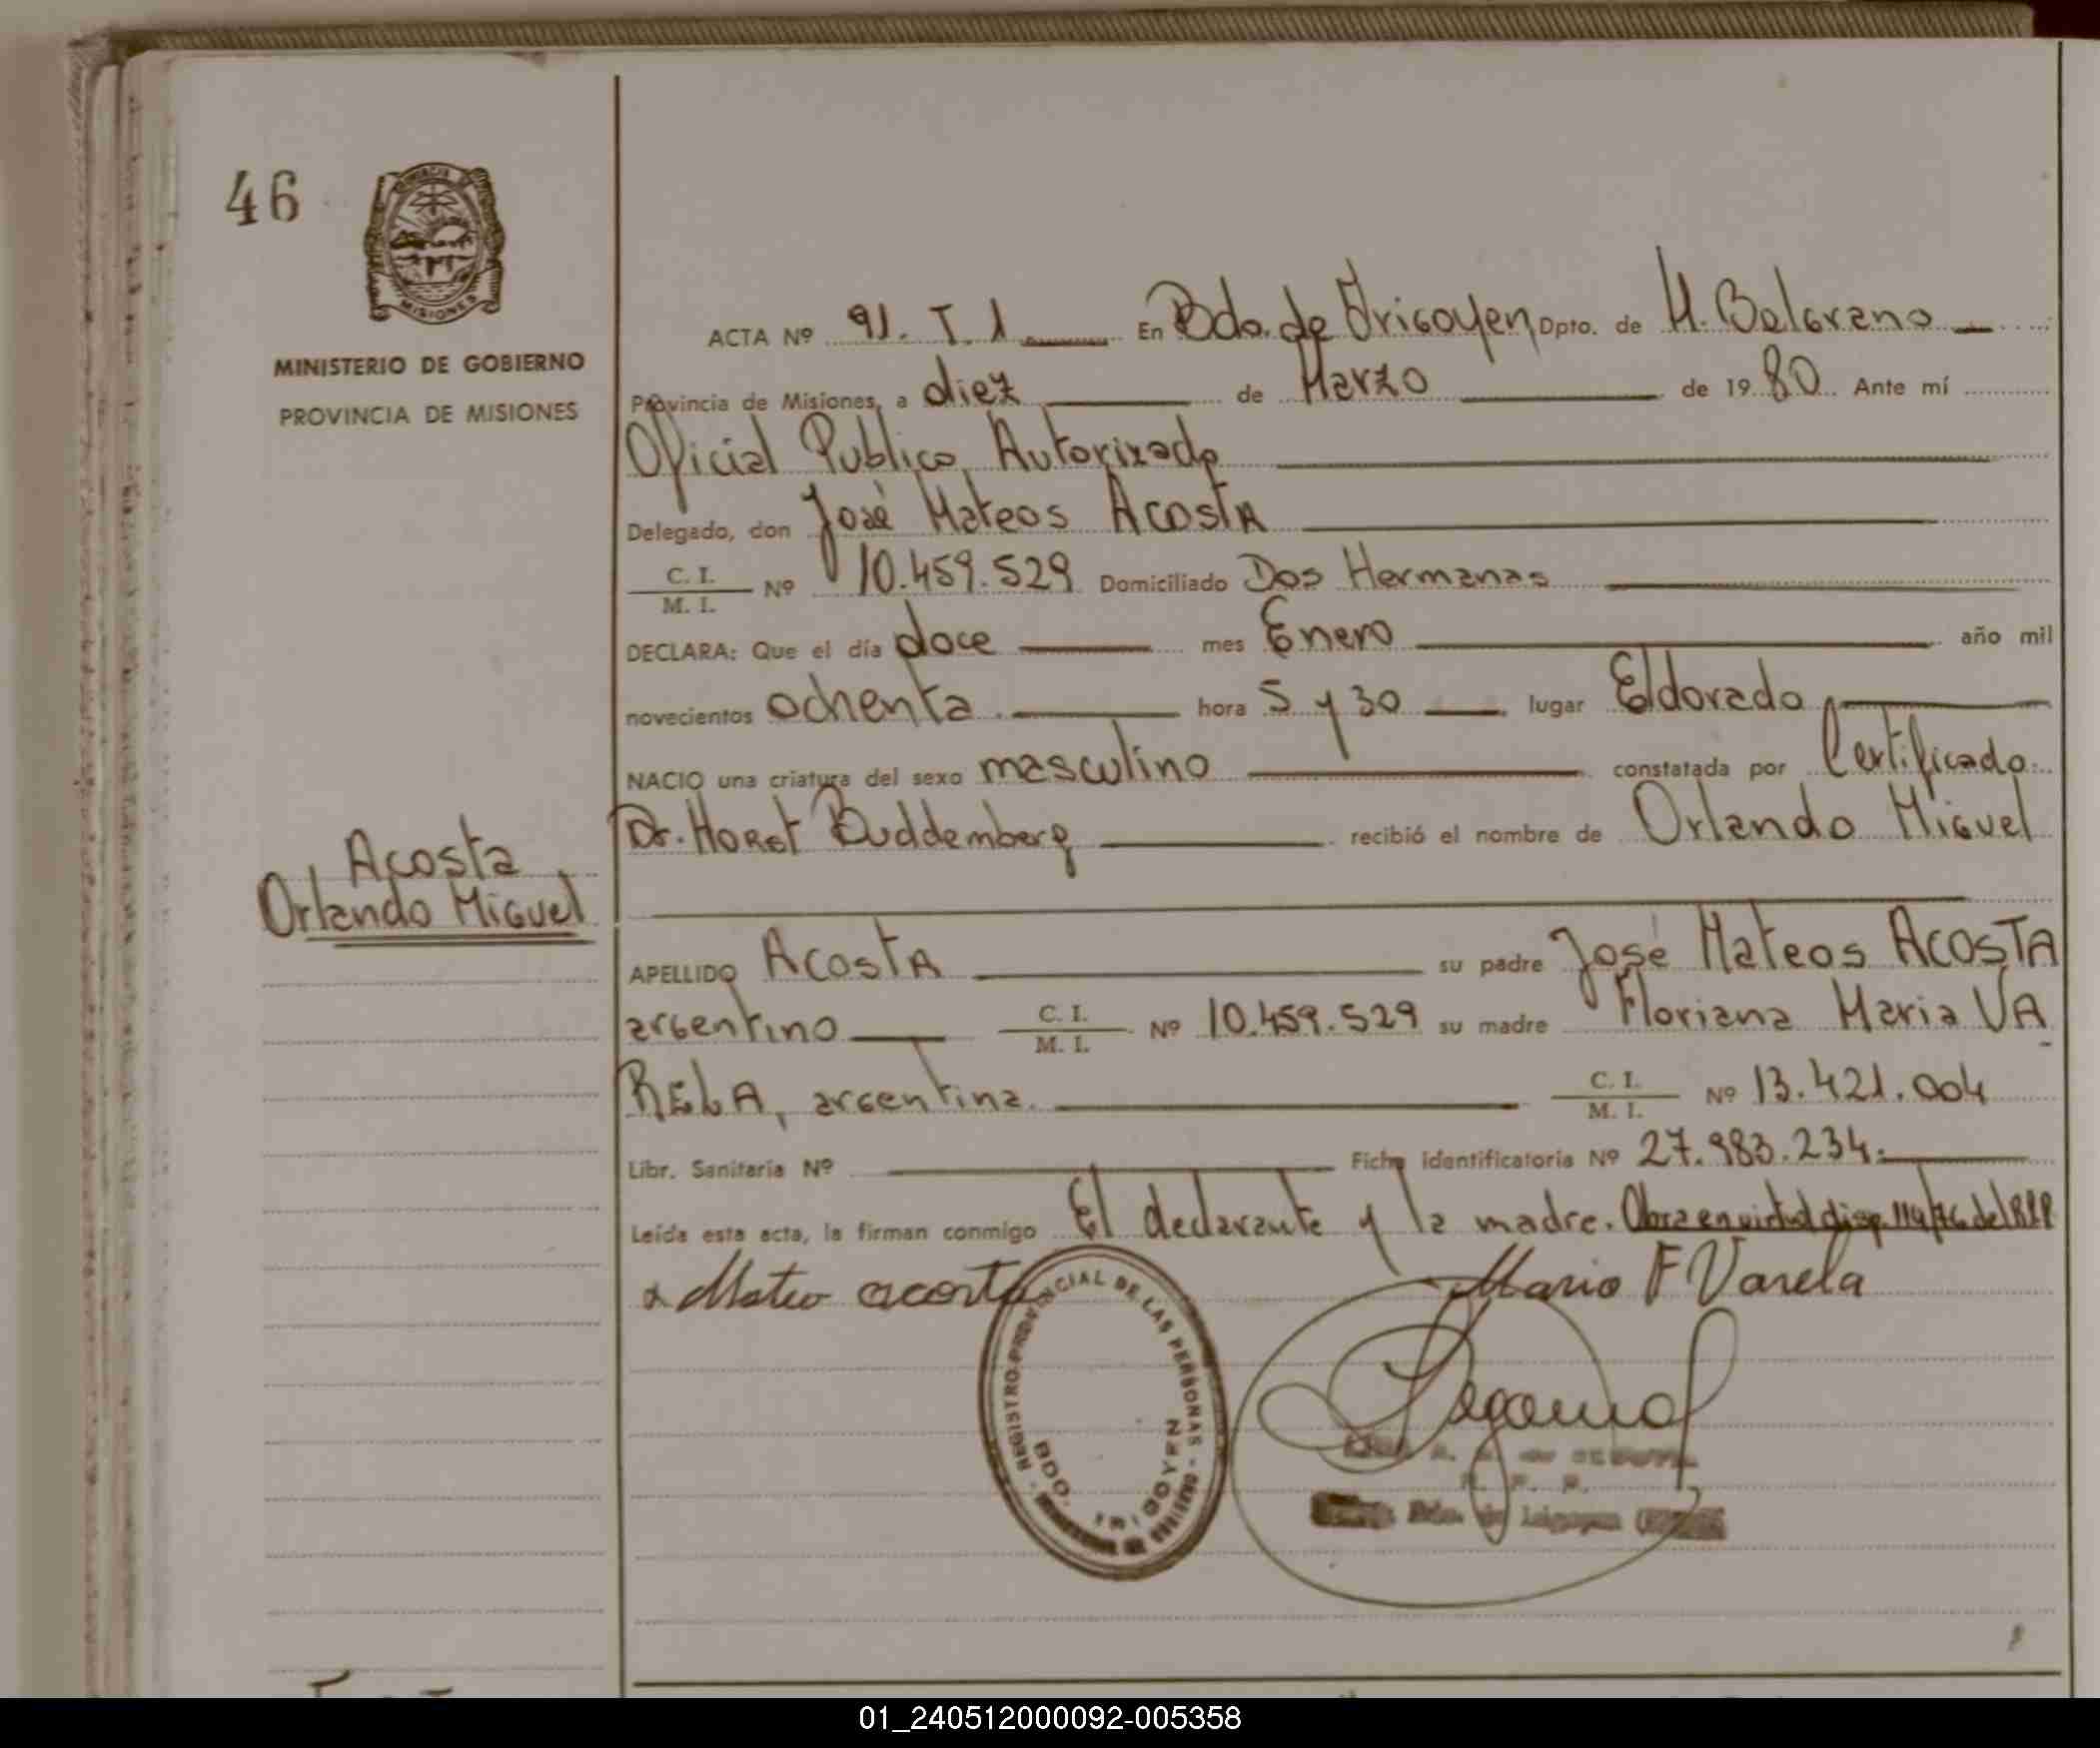 46
MISIONES
MINISTERIO DE GOBIERNO
PROVINCIA DE MISIONES
Acosta
Orlando Miguel
ACTA Nº 91. T. 1 En Bdo. de Irigoyen Dpto. de M. Belgrano
Provincia de Misiones, a diez de Marzo de 1980 Ante mí
Oficial Publico, Autorizado
Delegado, don José Mateos ACOSTA
C. I. / M. I. Nº 10.459.529 Domiciliado Dos Hermanas
DECLARA: Que el día doce mes Enero año mil
novecientos ochenta hora 5 y 30 lugar Eldorado
NACIO una criatura del sexo masculino constatada por Certificado
Dr. Horst Buddemberg recibió el nombre de Orlando Miguel
APELLIDO ACOSTA su padre José Mateos ACOSTA
argentino C. I. / M. I. Nº 10.459.529 su madre Floriana Maria VA
RELA, argentina. C. I. / M. I. Nº 13.421.004
Libr. Sanitaria Nº Ficha identificatoria Nº 27.983.234.
Leída esta acta, la firman conmigo El declarante y la madre. Obra en virtud disp. 114/76 del RPP
x Mateo acosta Mario F Varela
REGISTRO PROVINCIAL DE LAS PERSONAS
BDO. IRIGOYEN
Bdo. de Irigoyen
01_240512000092-005358